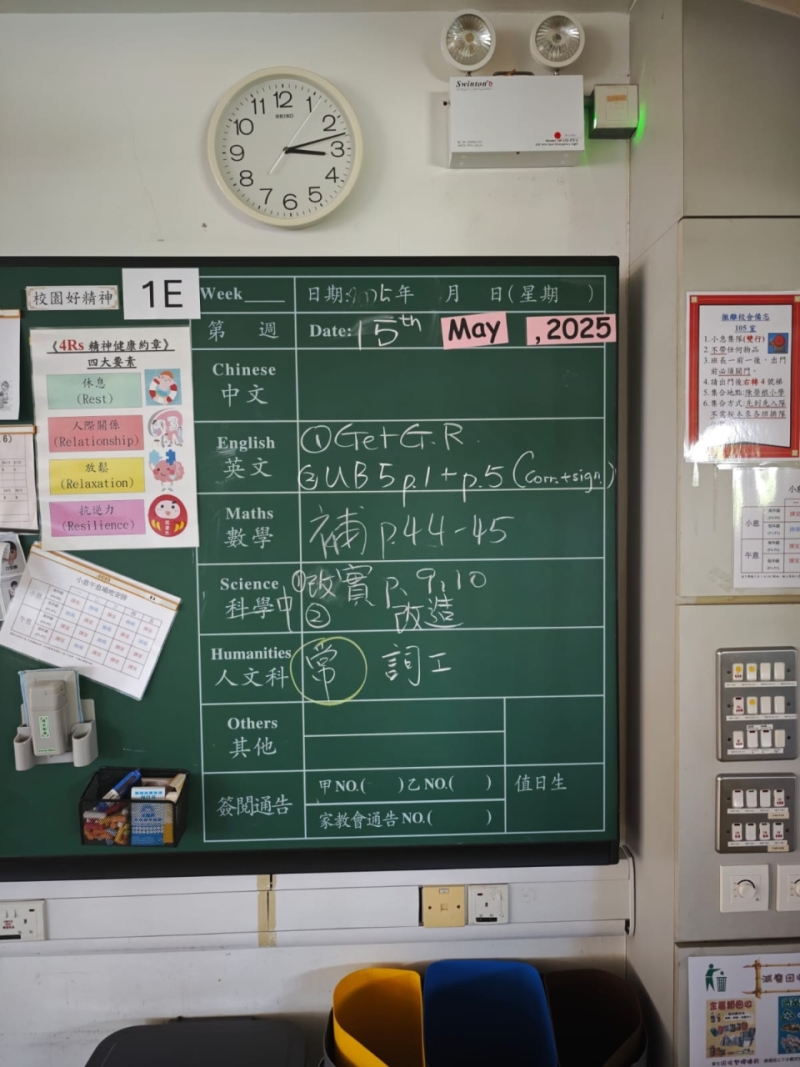 12
11
1
10
2
SEIKO
9
3
8
4
7
5
6
Swinton
校園好精神
1E
Week
日期: 年 月 日(星期 )
第 週
Date: 15th May , 2025
《4Rs 精神健康約章》
四大要素
休息
(Rest)
人際關係
(Relationship)
放鬆
(Relaxation)
抗逆力
(Resilience)
Chinese
中文
English
英文
① Get G.R.
② UB5 p.1 + p.5 (Corr. + sign)
Maths
數學
補 p.44-45
Science
科學
① 改實 p.9,10
② 改造
Humanities
人文科
常 詞工
Others
其他
簽閱通告
甲 NO.( ) 乙 NO.( )
家教會通告 NO.( )
值日生
撤離校舍備忘
105 室
1. 小息集隊(雙行)
2. 不帶任何物品
3. 班長一前一後,出門
前必須關門。
4. 請出門後右轉 4 號梯
小息
午息